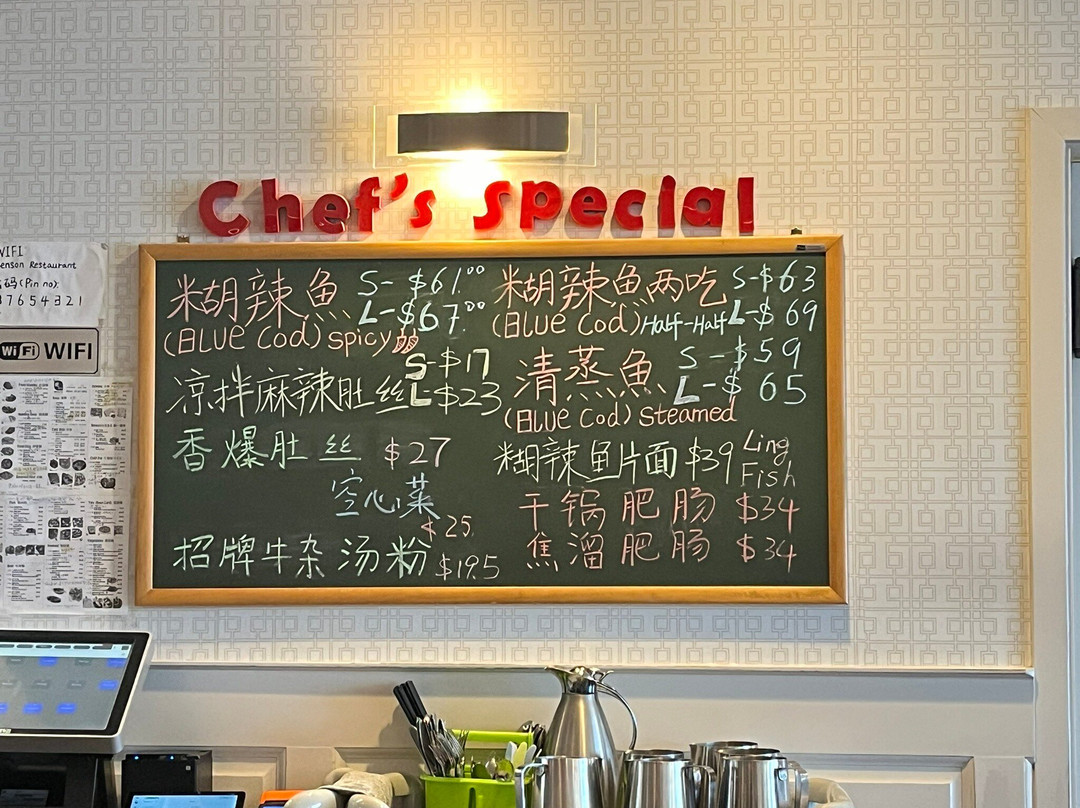 Chef's Special
WIFI
enson Restaurant
码(Pin no):
87654321
WiFi WIFI
糊辣鱼 S-$61.00
L-$67.00
(BLUE Cod) spicy
凉拌麻辣肚丝 S-$17
L-$23
香爆肚丝 $27
空心菜
$25
招牌牛杂汤粉 $19.5
糊辣鱼两吃 S-$63
(BLUE Cod) Half-Half L-$69
清蒸鱼 S-$59
L-$65
(BLUE Cod) Steamed
糊辣鱼片面 $39 Ling
Fish
干锅肥肠 $34
焦溜肥肠 $34